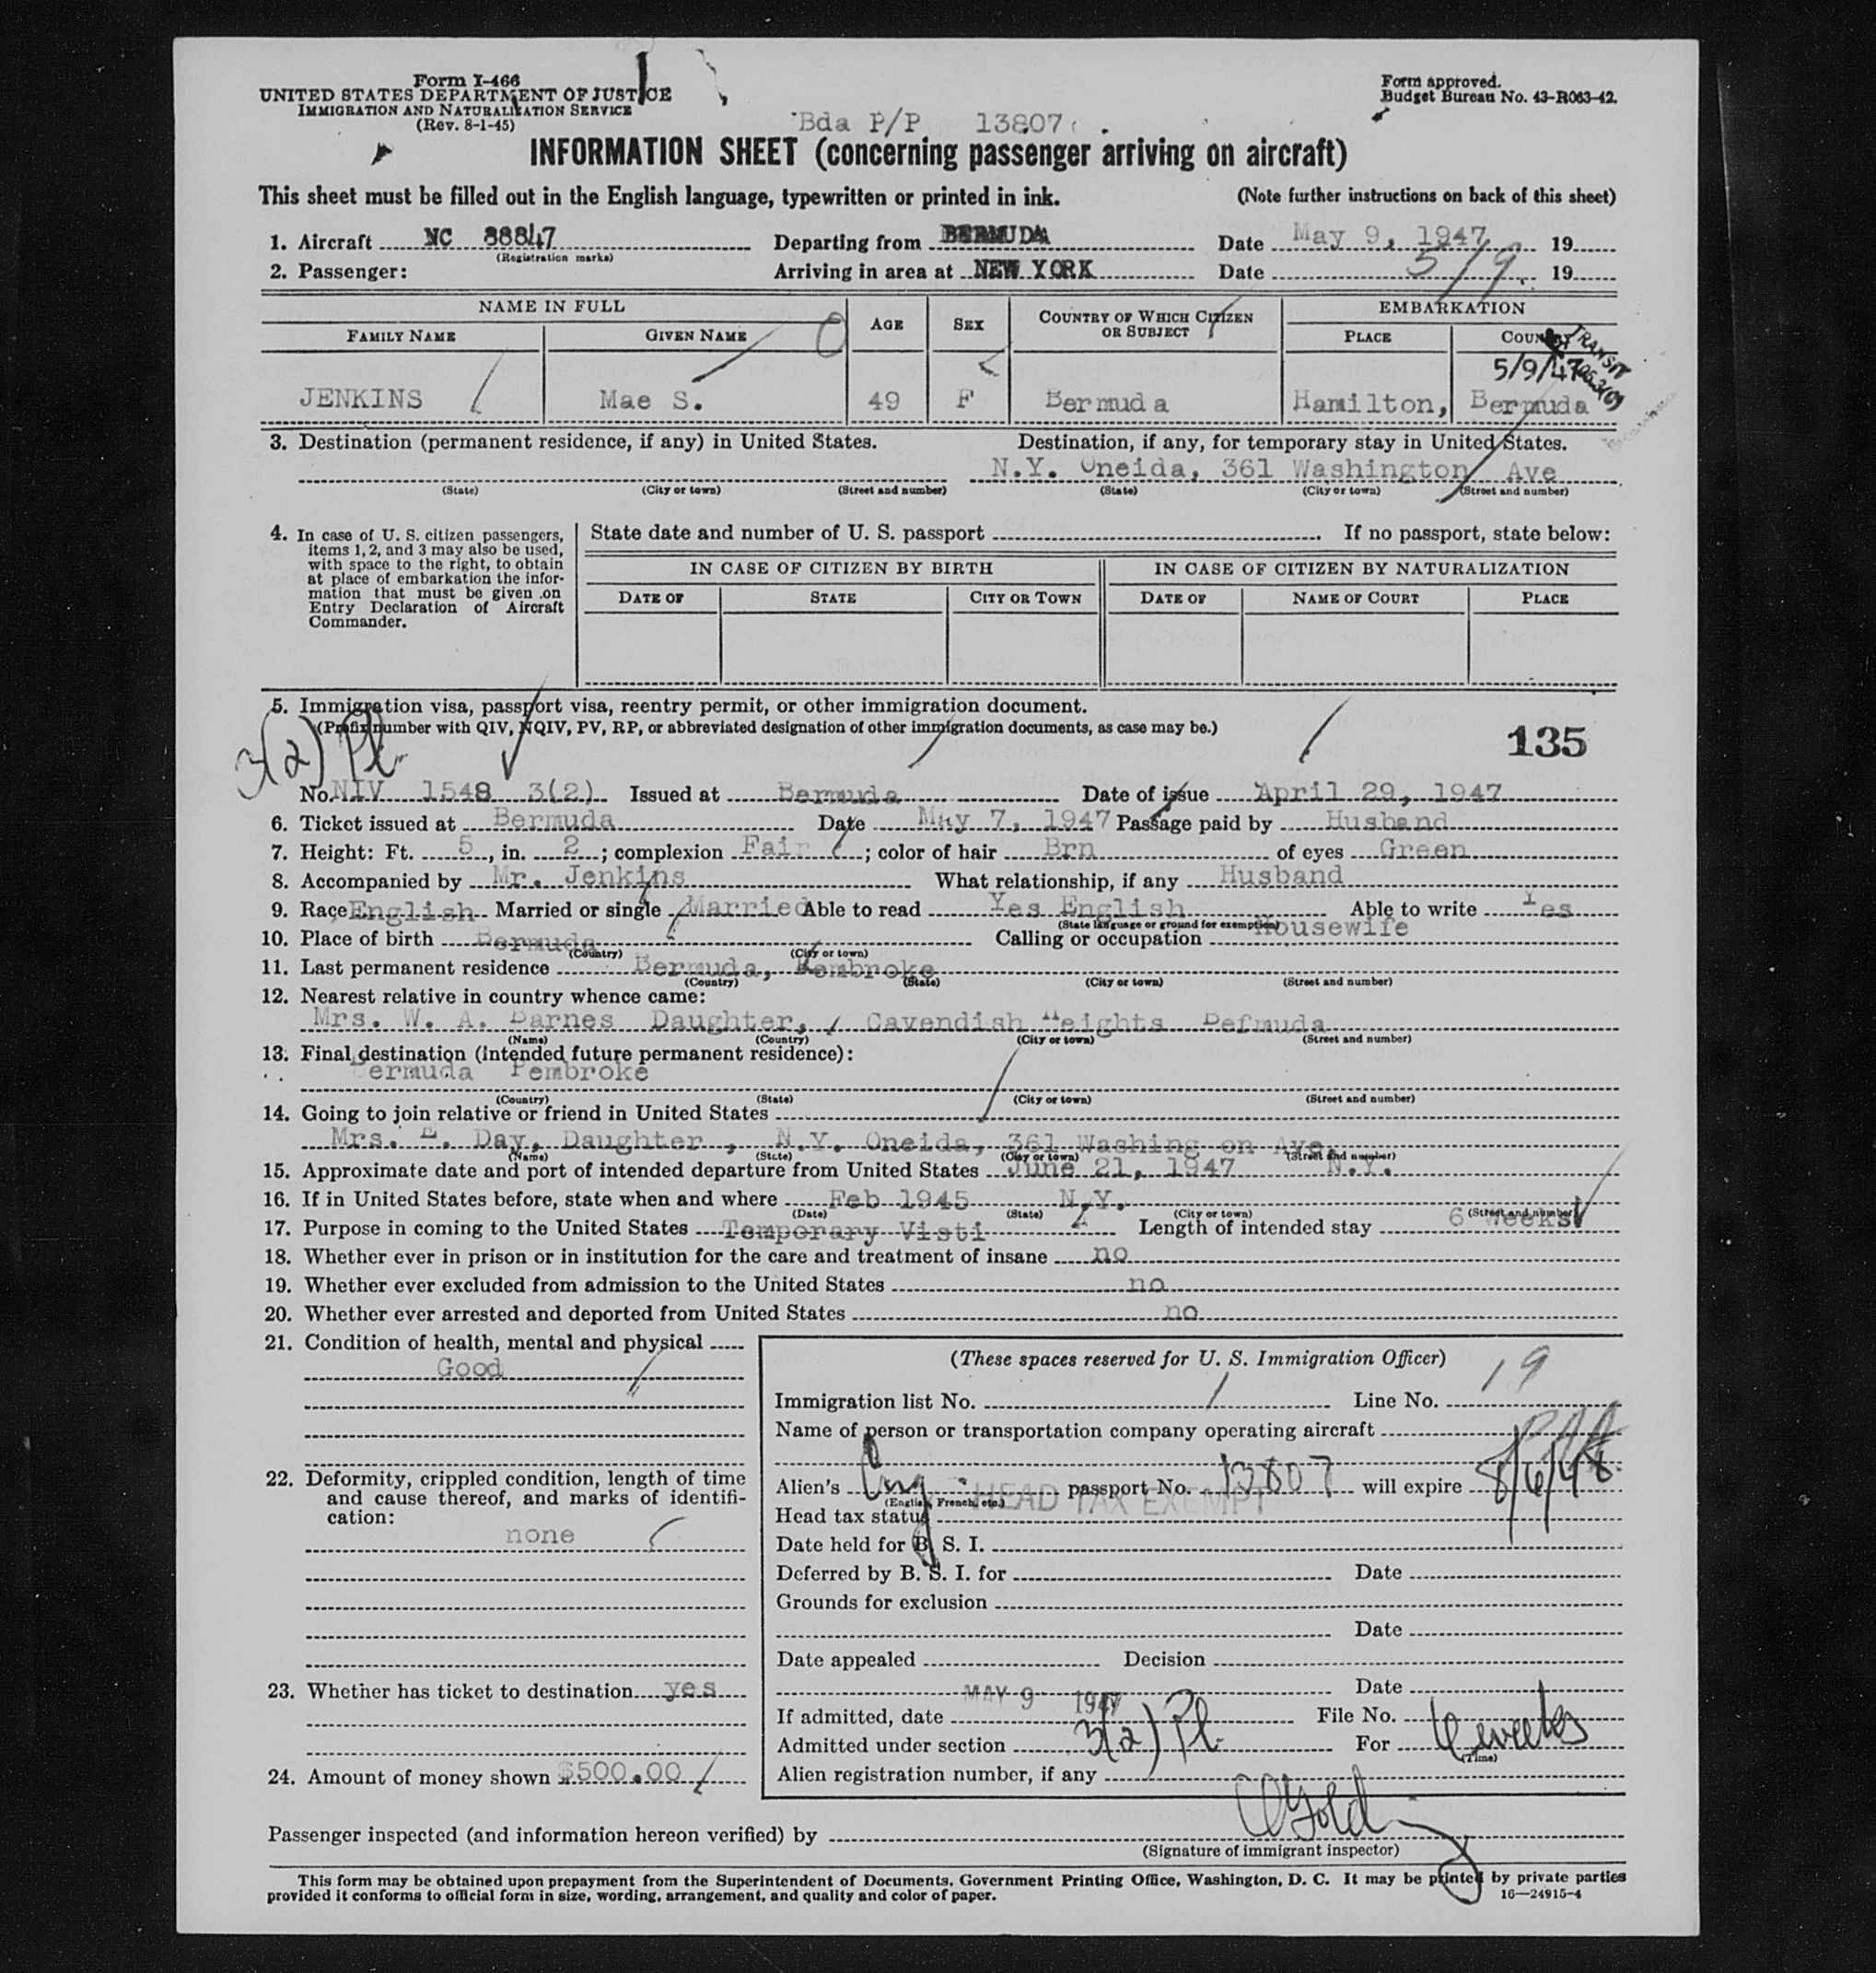 Form I-466
UNITED STATES DEPARTMENT OF JUSTICE
IMMIGRATION AND NATURALIZATION SERVICE
(Rev. 8-1-45)
Form approved.
Budget Bureau No. 43-R063-42.
Bda P/P 13807
INFORMATION SHEET (concerning passenger arriving on aircraft)
This sheet must be filled out in the English language, typewritten or printed in ink. (Note further instructions on back of this sheet)
1. Aircraft NC 88847 Departing from BERMUDA Date May 9, 1947 19
(Registration marks)
2. Passenger: Arriving in area at NEW YORK Date 5/9 19
NAME IN FULL AGE SEX COUNTRY OF WHICH CITIZEN OR SUBJECT EMBARKATION
FAMILY NAME GIVEN NAME PLACE COUNTRY
TRANSIT
5/9/47
JENKINS Mae S. 49 F Bermuda Hamilton, Bermuda
3. Destination (permanent residence, if any) in United States. Destination, if any, for temporary stay in United States.
N.Y. Oneida, 361 Washington Ave
(State) (City or town) (Street and number) (State) (City or town) (Street and number)
4. In case of U. S. citizen passengers, items 1, 2, and 3 may also be used, with space to the right, to obtain at place of embarkation the information that must be given on Entry Declaration of Aircraft Commander.
State date and number of U. S. passport . If no passport, state below:
IN CASE OF CITIZEN BY BIRTH IN CASE OF CITIZEN BY NATURALIZATION
DATE OF STATE CITY OR TOWN DATE OF NAME OF COURT PLACE
5. Immigration visa, passport visa, reentry permit, or other immigration document.
(Prefix number with QIV, NQIV, PV, RP, or abbreviated designation of other immigration documents, as case may be.)
135
3(2) Pl.
No. NIV 1548 3(2) Issued at Bermuda Date of issue April 29, 1947
6. Ticket issued at Bermuda Date May 7, 1947 Passage paid by Husband
7. Height: Ft. 5, in. 2; complexion Fair; color of hair Brn of eyes Green
8. Accompanied by Mr. Jenkins What relationship, if any Husband
9. Race English Married or single Married Able to read Yes English Able to write Yes
(State language or ground for exemption)
10. Place of birth Bermuda Calling or occupation Housewife
(Country) (City or town)
11. Last permanent residence Bermuda, Pembroke
(Country) (State) (City or town) (Street and number)
12. Nearest relative in country whence came:
Mrs. W. A. Barnes Daughter, Cavendish Heights Bermuda
(Name) (Country) (City or town) (Street and number)
13. Final destination (intended future permanent residence):
Bermuda Pembroke
(Country) (State) (City or town) (Street and number)
14. Going to join relative or friend in United States
Mrs. E. Day, Daughter , N.Y. Oneida, 361 Washing on Ave.
(Name) (State) (City or town) (Street and number)
15. Approximate date and port of intended departure from United States June 21, 1947 N.Y.
16. If in United States before, state when and where Feb 1945 N.Y.
(Date) (State) (City or town) (Street and number)
17. Purpose in coming to the United States Temporary Visti Length of intended stay 6 weeks
18. Whether ever in prison or in institution for the care and treatment of insane no
19. Whether ever excluded from admission to the United States no
20. Whether ever arrested and deported from United States no
21. Condition of health, mental and physical
Good
22. Deformity, crippled condition, length of time
and cause thereof, and marks of identifi-
cation:
none
23. Whether has ticket to destination yes
24. Amount of money shown $500.00
(These spaces reserved for U. S. Immigration Officer)
Immigration list No. 1 Line No. 19
Name of person or transportation company operating aircraft
Alien's Eng passport No. 13807 will expire 8/6/48
(English, French, etc.)
HEAD TAX EXEMPT
Head tax status
Date held for B. S. I.
Deferred by B. S. I. for Date
Grounds for exclusion
Date
Date appealed Decision
Date
MAY 9 1947
If admitted, date File No.
Admitted under section 3(2) Pl. For 6 weeks
(Time)
Alien registration number, if any
Passenger inspected (and information hereon verified) by
(Signature of immigrant inspector)
This form may be obtained upon prepayment from the Superintendent of Documents, Government Printing Office, Washington, D. C. It may be printed by private parties
provided it conforms to official form in size, wording, arrangement, and quality and color of paper. 16—24915-4